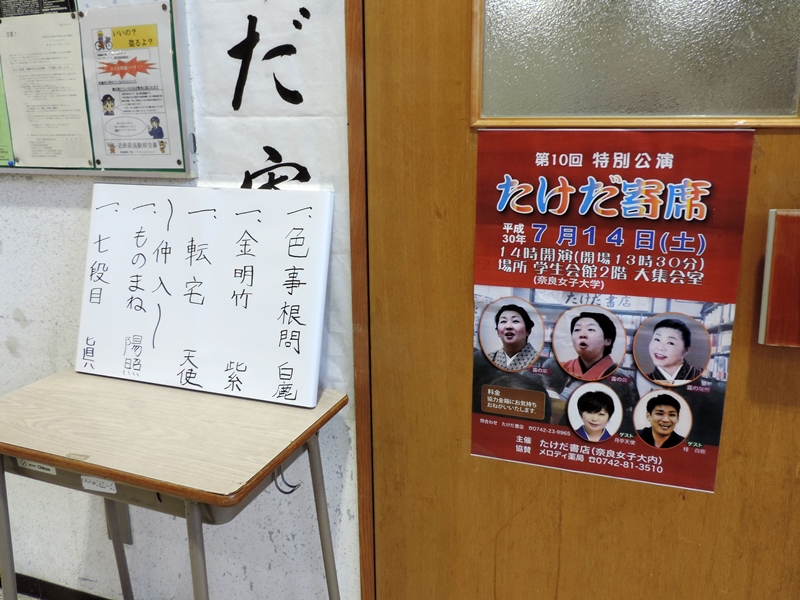 いいの?
盗るよ?
だ
寄
一、色事根問 白鹿
一、金明竹 紫
一、転宅 天使
〜仲入〜
一、ものまね 陽照
一、七段目 眞
第10回 特別公演
たけだ寄席
平成30年 7月14日(土)
14時開演(開場13時30分)
場所 学生会館2階 大集会室
(奈良女子大学)
たけだ書店
料金
協力金箱にお気持ち
おねがいいたします。
問合わせ たけだ書店 ☎0742-23-9965
ゲスト
ゲスト
主催 たけだ書店(奈良女子大内)
協賛 メロディ薬局 ☎0742-81-3510